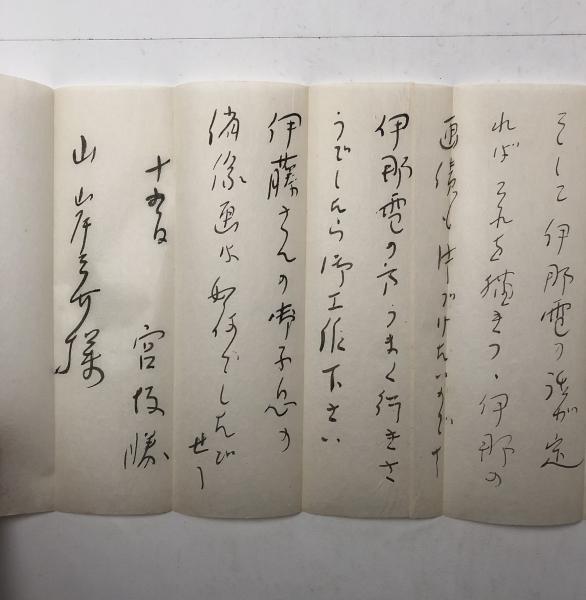 そして伊那電の話が定
ればそれを描きつゝ伊那の
画債も片づけたいのです
伊那電の方うまく行きさ
うでしたら御工作下さい
伊藤さんの御子息の
肖像画は如何でしたでせう
十五日
宮坂勝
山岸三介様